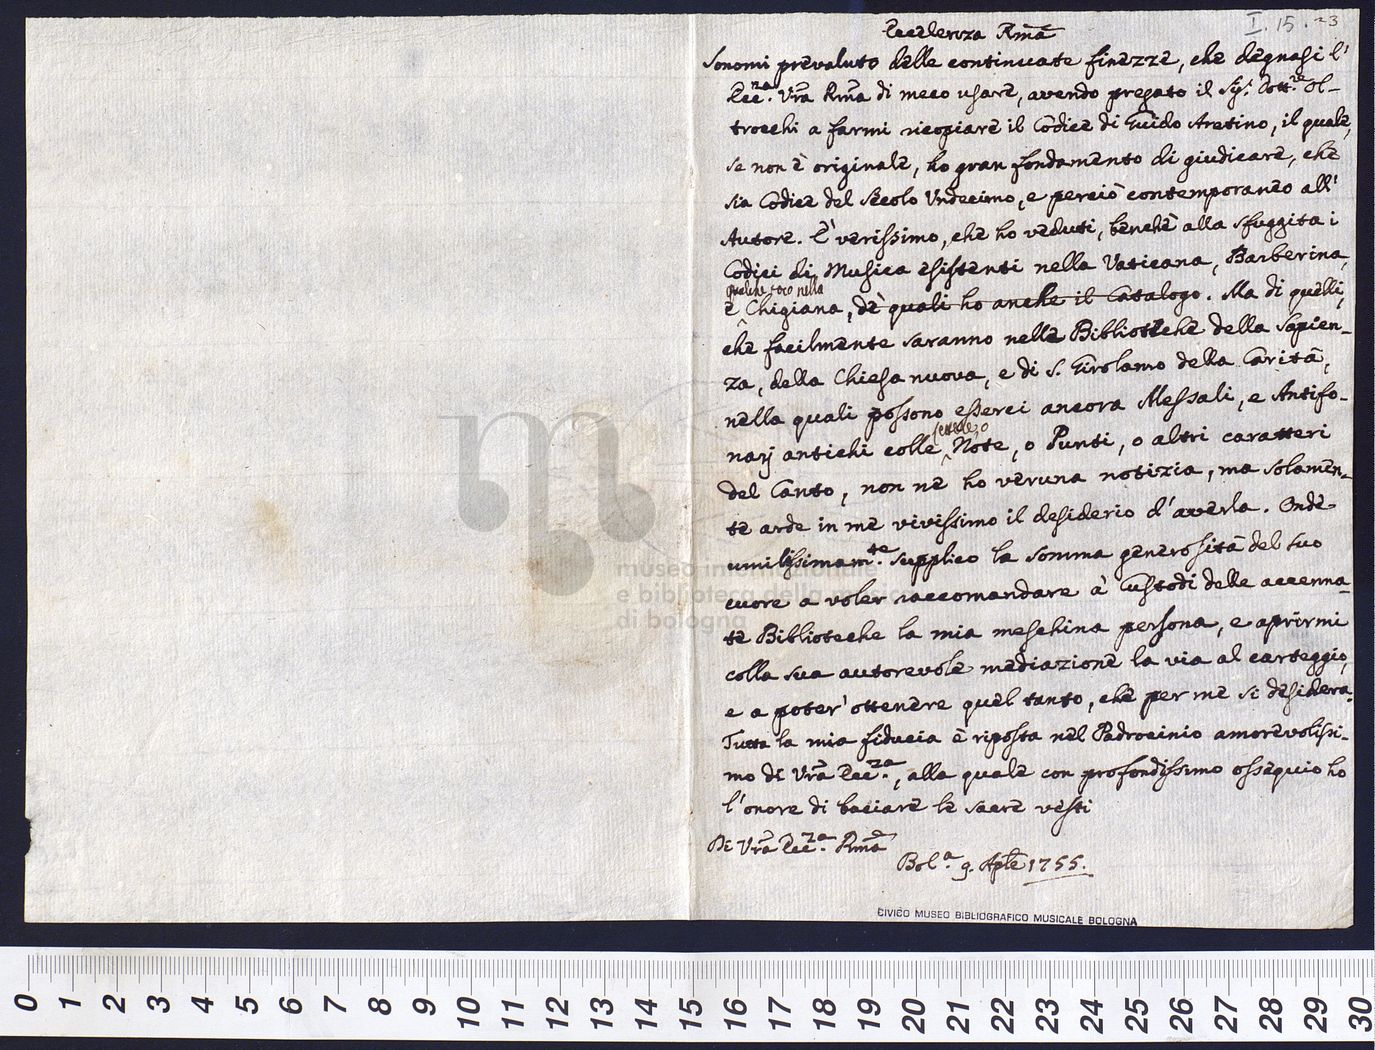 I. 15. 23
Eccelenza Rma
Sonomi prevaluto delle continuate finezze, che degnasi l'
Ecc.za Vra Rma di meco usare, avendo pregato il Sig.r Dott.re Ol-
trocchi a farmi ricopiare il Codice di Guido Aretino, il quale,
se non è originale, ho gran fondamento di giudicare, che
sia Codice del Secolo Undecimo, e perciò contemporaneo all'
Autore. E' verissimo, che ho veduti, benchè alla sfuggita i
Codici di Musica esistenti nella Vaticana, Barberina,
nella
e Chigiana, de' quali ho anche il Catalogo. Ma di quelli,
che facilmente saranno nelle Biblioteche della Sapien-
za, della Chiesa nuova, e di S. Girolamo della Carità,
nella quali possono esserci ancora Messali, e Antifo-
narj antichi colle Note, o Punti, o altri caratteri
del Canto, non ne ho veruna notizia, ma solamen-
te arde in me vivissimo il desiderio d'averla. Onde
umilissimam.te supplico la somma generosità del suo
cuore a voler raccomandare a' Custodi delle accenna-
te Biblioteche la mia meschina persona, e aprirmi
colla sua autorevole mediazione la via al carteggio,
e a poter' ottenere quel tanto, che per me si desidera.
Tutta la mia fiducia è riposta nel Padrocinio amorevolissi-
mo di Vra Ecc.za, alla quale con profondissimo ossequio ho
l'onore di baciare le sacre vesti
Di Vra Ecc.za Rma
Bol.a 9. Aple 1755.
CIVICO MUSEO BIBLIOGRAFICO MUSICALE BOLOGNA
museo internazionale
e biblioteca della musica
di bologna
0 1 2 3 4 5 6 7 8 9 10 11 12 13 14 15 16 17 18 19 20 21 22 23 24 25 26 27 28 29 30